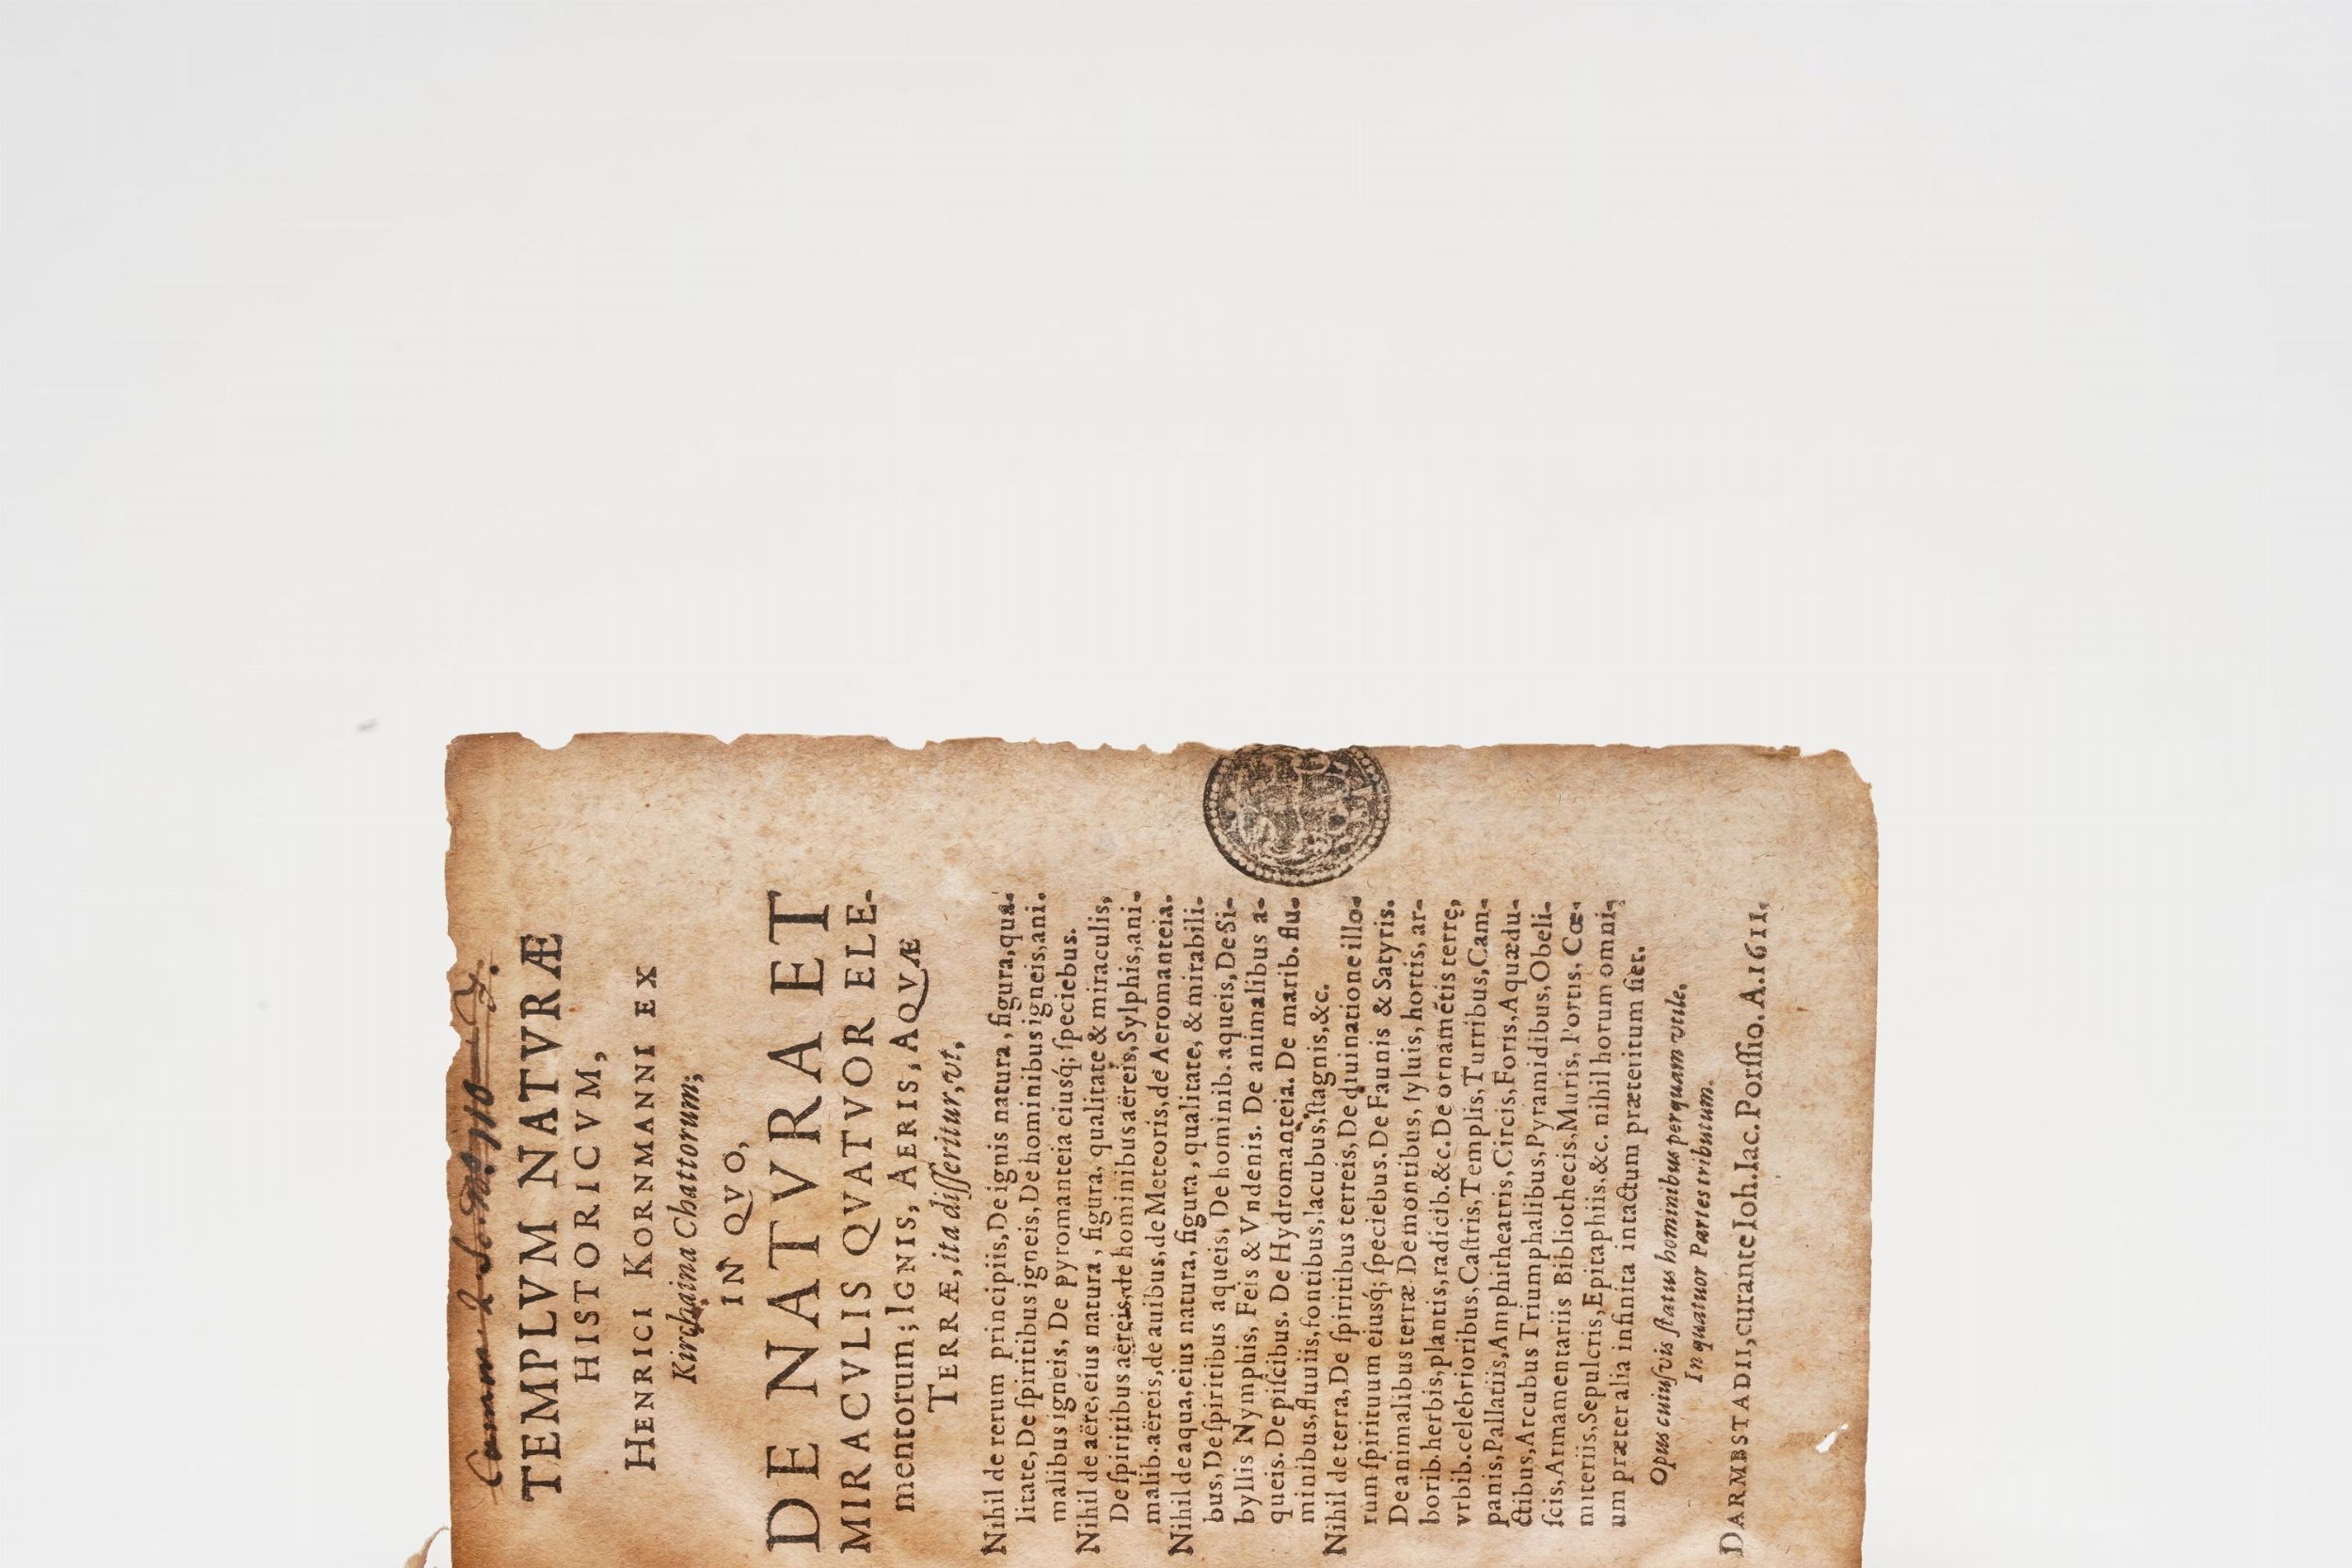 TEMPLVM NATVRÆ
HISTORICVM,
HENRICI KORNMANNI EX
Kirchaina Chattorum;
IN QVO,
DE NATVRA ET
MIRACVLIS QVATVOR ELE-
mentorum; IGNIS, AERIS, AQVÆ
TERRÆ, ita diſſeritur, vt,
Nihil de rerum principiis, De ignis natura, figura, qua-
litate, De ſpiritibus igneis, De hominibus igneis, ani-
malibus igneis, De pyromanteia eiusq́; ſpeciebus.
Nihil de aëre, eius natura, figura, qualitate & miraculis,
De ſpiritibus aëreis, de hominibus aëreis, Sylphis, ani-
malib. aëreis, de auibus, de Meteoris, de Aeromanteia.
Nihil de aqua, eius natura, figura, qualitate, & mirabili-
bus, De ſpiritibus aqueis, De hominib. aqueis, De Si-
byllis Nymphis, Feis & Vndenis. De animalibus a-
queis. De piſcibus. De Hydromanteia. De marib. flu-
minibus, fluuiis, fontibus, lacubus, ſtagnis, &c.
Nihil de terra, De ſpiritibus terreis, De diuinatione illo-
rum ſpirituum eiusq́; ſpeciebus. De Faunis & Satyris.
De animalibus terræ. De montibus, ſyluis, hortis, ar-
borib. herbis, plantis, radicib. &c. De ornamẽtis terrę,
vrbib. celebrioribus, Caſtris, Templis, Turribus, Cam-
panis, Pallatiis, Amphitheatris, Circis, Foris, Aquædu-
ctibus, Arcubus Triumphalibus, Pyramidibus, Obeli-
ſcis, Armamentariis Bibliothecis, Muris, Portis, Cœ-
miteriis, Sepulcris, Epitaphiis, &c. nihil horum omni-
um præter alia infinita intactum præteritum ſiet.
Opus cuiuſvis ſtatus hominibus perquam vtile.
In quatuor Partes tributum.
DARMBSTADII, curante Ioh. Iac. Porſſio. A. 1611.